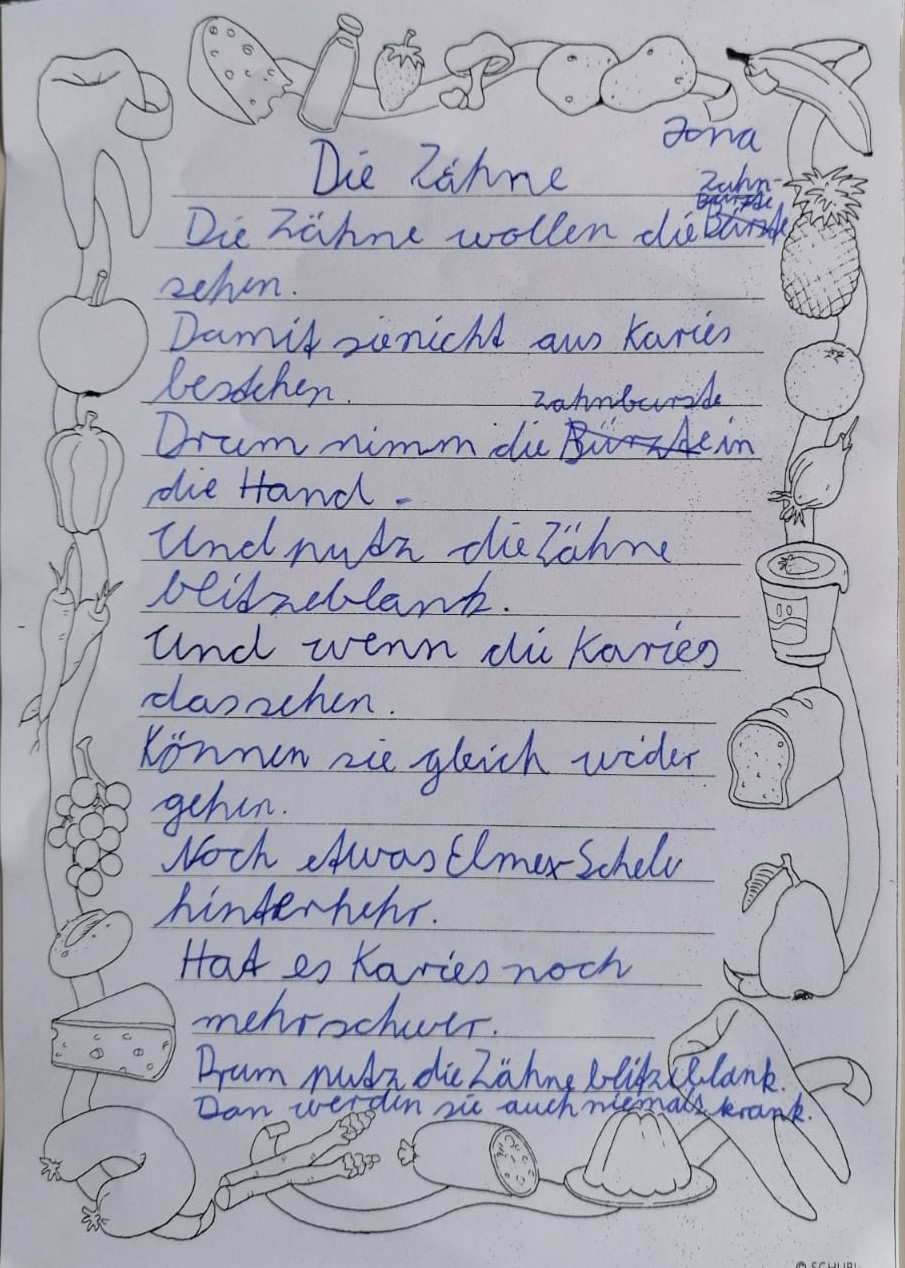 Jona
Die Zähne
Zahn-
Bürzte
Die Zähne wollen die Bürzte
sehen.
Damit sie nicht aus Karies
bestehen.
Zahnburste
Drum nimm die Bürzte in
die Hand.
Und putz die Zähne
blitzeblank.
Und wenn die Karies
das sehen.
Können sie gleich wider
gehen.
Noch etwas Elmex-Schele
hinterhehr.
Hat es Karies noch
mehr schwer.
Drum putz die Zähne blitzeblank.
Dan werden sie auch niemals krank.
© SCHUBI